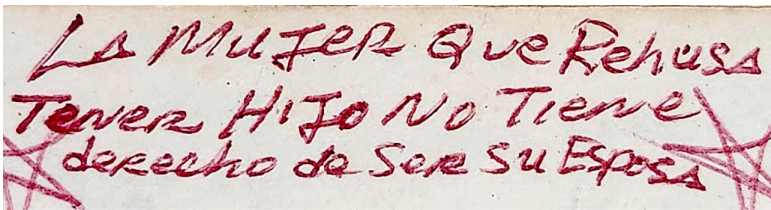 La Mujer Que Rehusa
Tener Hijo No Tiene
derecho de Ser Su Esposa